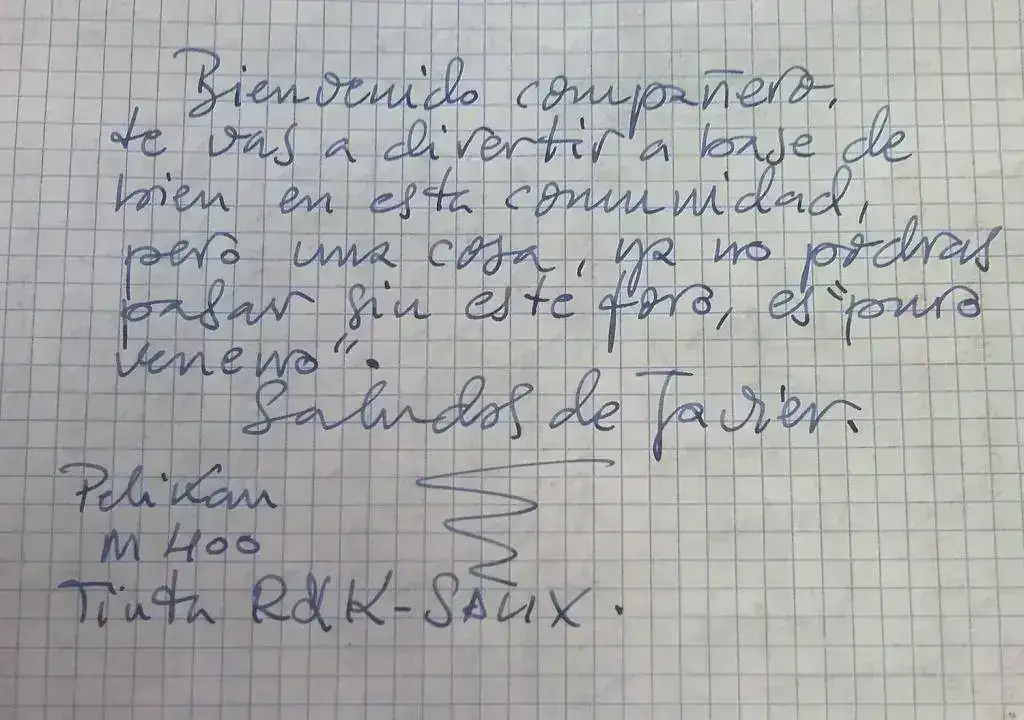 Bienvenido compañero,
te vas a divertir a base de
bien en esta comunidad,
pero una cosa, ya no podras
pasar sin este foro, es "puro
veneno".
Saludos de Javier.
Pelikan
M400
Tinta R&K-SALIX.